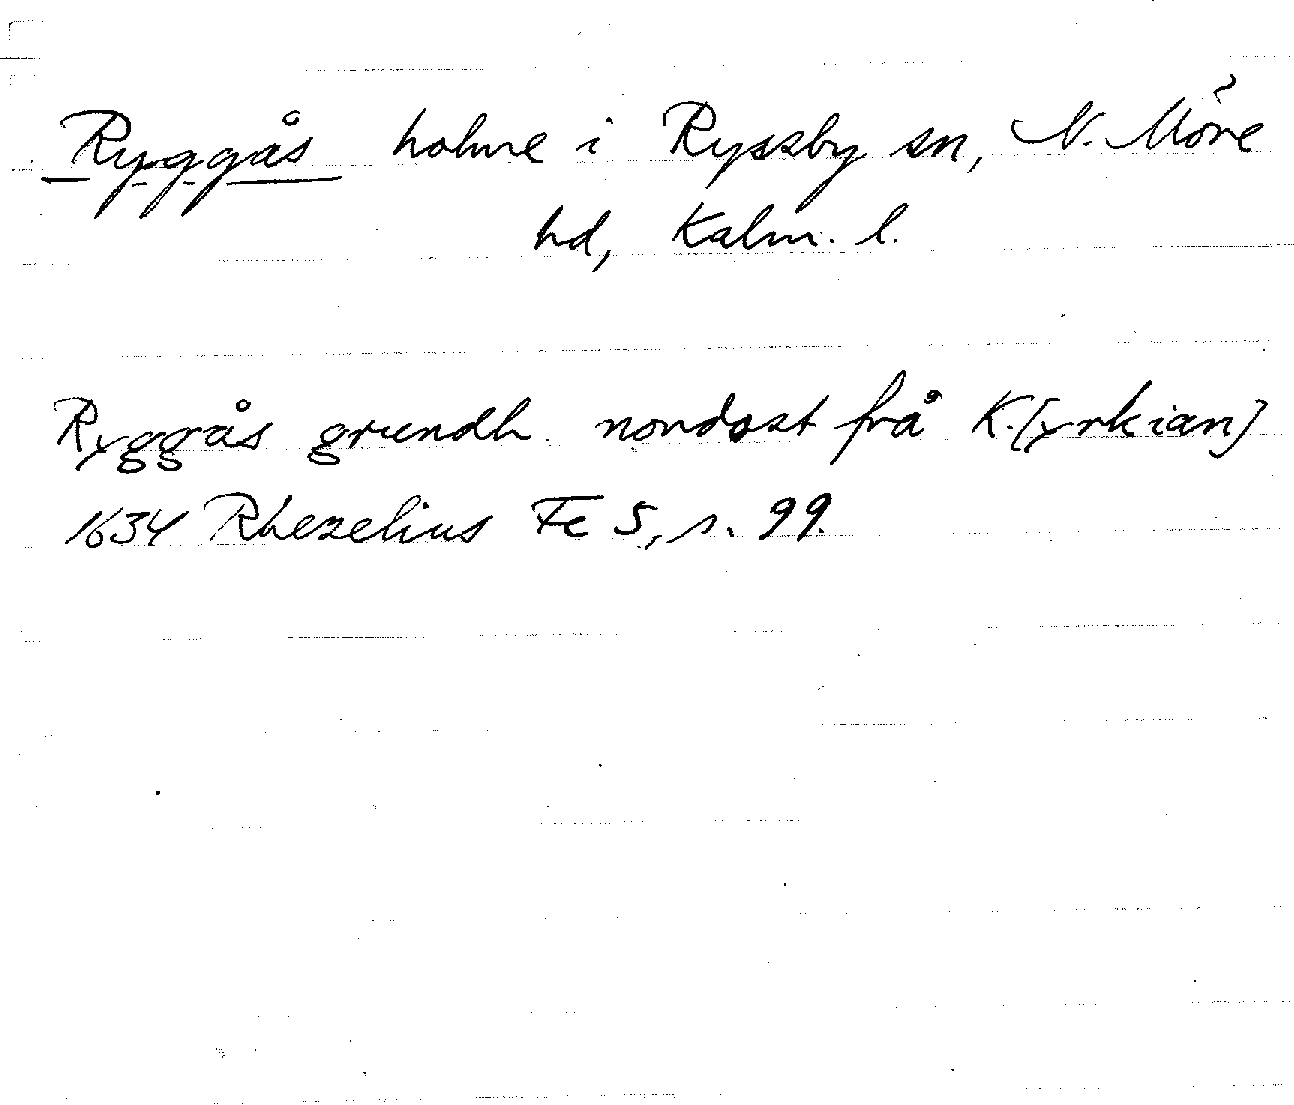 Ryggås holme i Ryssby sn, N. Möre
hd, Kalm. l.
Ryggås grundh nordost frå K.[yrkian]
1634 Rhezelius Fc 5, s. 99.